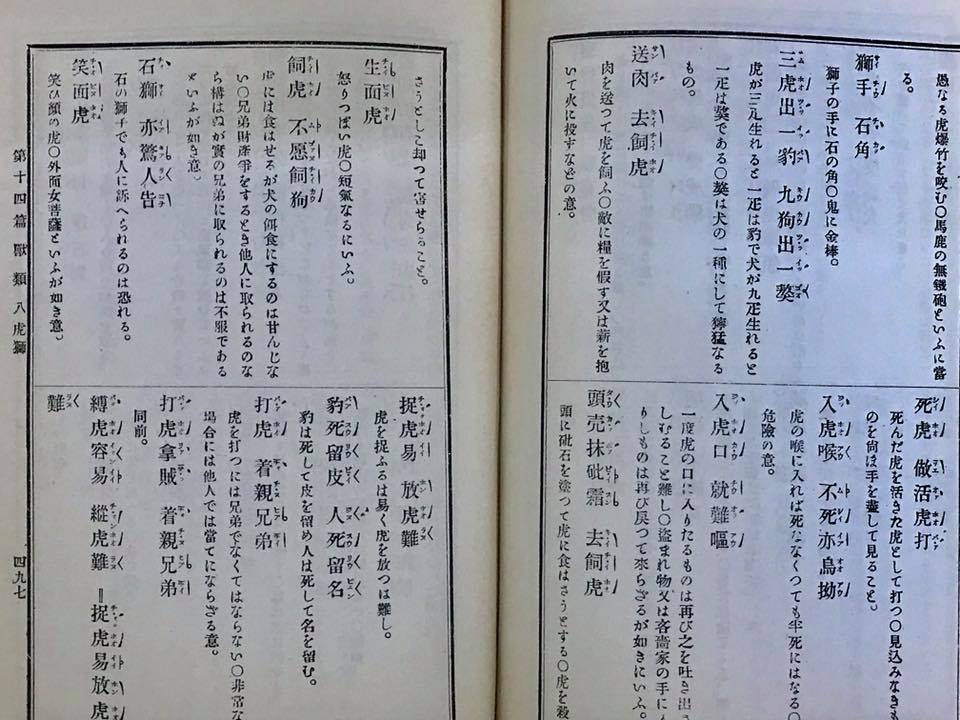 愚なる虎爆竹を咬む〇馬鹿の無鐵砲といふに當
る。
獅手　石角
獅子の手に石の角〇鬼に金棒。
三虎出一豹　九狗出一獒
虎が三疋生れると一疋は豹で犬が九疋生れると
一疋は獒である〇獒は犬の一種にして獰猛なる
もの。
送肉　去飼虎
肉を送つて虎を飼ふ〇敵に糧を假す又は薪を抱
いて火に投ずなどの意。
死虎　做活虎打
死んだ虎を活きた虎として打つ〇見込みなきも
のを尙ほ手を盡して見ること。
入虎喉　不死亦烏拗
虎の喉に入れば死なゝくつても半死にはなる〇
危險の意。
入虎口　就難嘔
一度虎の口に入りたるものは再び之を吐き出
しむること難し〇盜まれ物又は吝嗇家の手に
りしものは再び戾つて來らざるが如きにいふ。
頭壳抹砒霜　去飼虎
頭に砒石を塗つて虎に食はさうとする〇虎を殺
さうとしこ却つて害せらるること。
生面虎
怒りつぽい虎〇短氣なるにいふ。
飼虎　不愿飼狗
虎には食はせるが犬の餌食にするのは甘んじな
い〇兄弟財產爭をするとき他人に取られるのな
ら構はぬが實の兄弟に取られるのは不服である
といふが如き意。
石獅　亦驚人告
石の獅子でも人に訴へられるのは恐れる。
笑面虎
笑ひ顏の虎〇外面女菩薩といふが如き意。
捉虎易　放虎難
虎を捉ふるは易く虎を放つは難し。
豹死留皮　人死留名
豹は死して皮を留め人は死して名を留む。
打虎　着親兄弟
虎を打つには兄弟でなくてはならない〇非常な
場合には他人では當てにならざる意。
打虎拿賊　着親兄弟
同前。
縛虎容易　縱虎難　＝捉虎易放虎
難
第十四篇　獸類　八虎獅
四九七